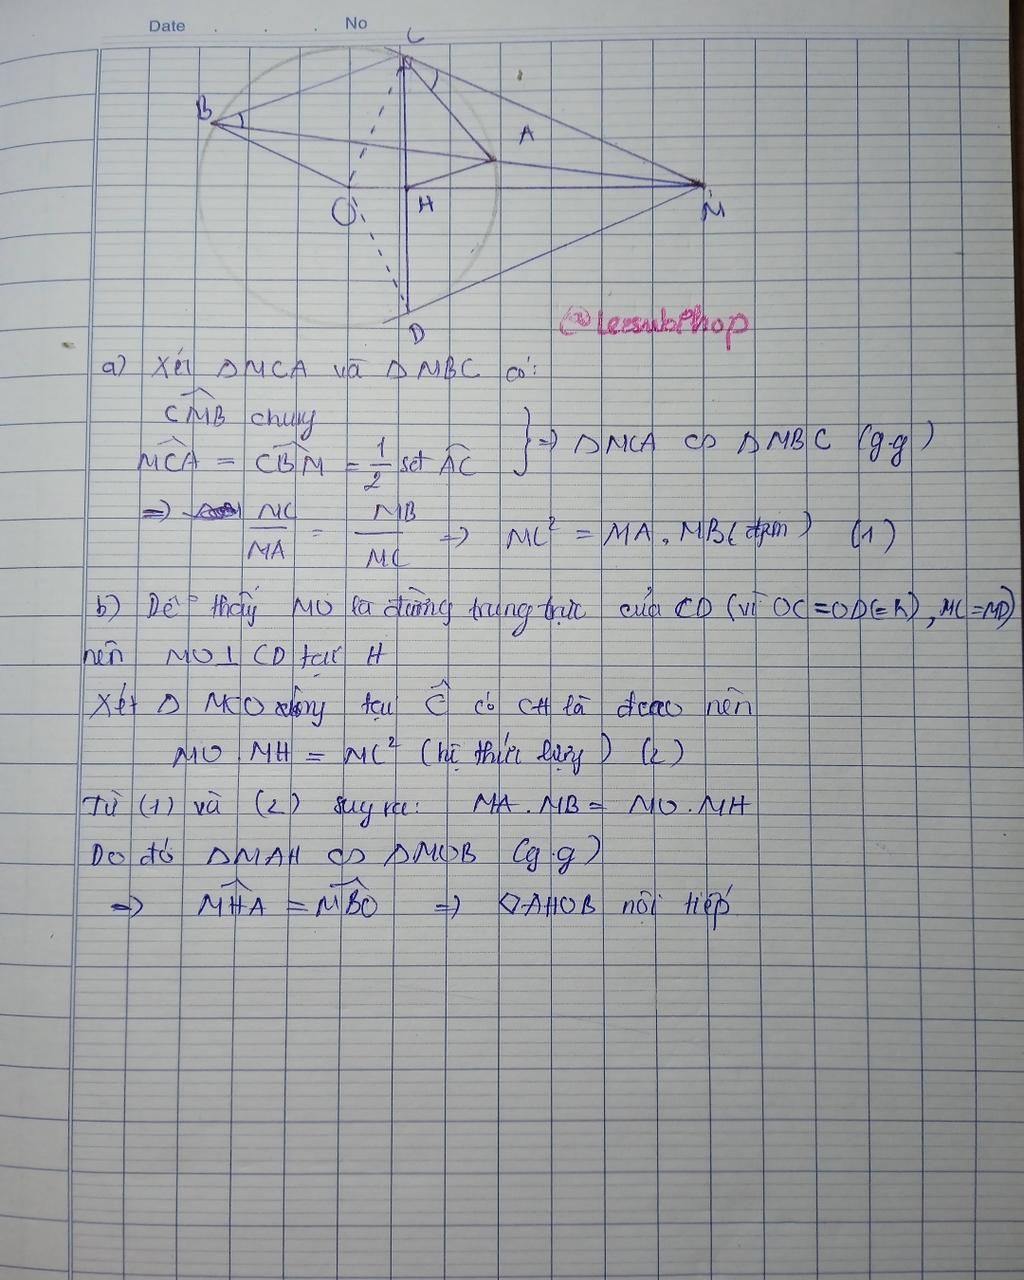 Date . . . No
C
B
A
O
H
M
D
@leesubthop
a) Xét ΔMCA và ΔMBC có:
CMB chung
MCA = CBM = 1/2 sđ AC } => ΔMCA ∽ ΔMBC (g.g)
=> MC/MA = MB/MC => MC² = MA.MB (đpcm) (1)
b) Dễ thấy MO là đường trung trực của CD (vì OC=OD(=R), MC=MD)
nên MO⊥CD tại H
Xét Δ MCO vuông tại C có CH là đcao nên
MO.MH = MC² (hệ thức lượng) (2)
Từ (1) và (2) suy ra: MA.MB = MO.MH
Do đó ΔMAH ∽ ΔMOB (g.g)
=> MHA = MBO => ◇AHOB nội tiếp